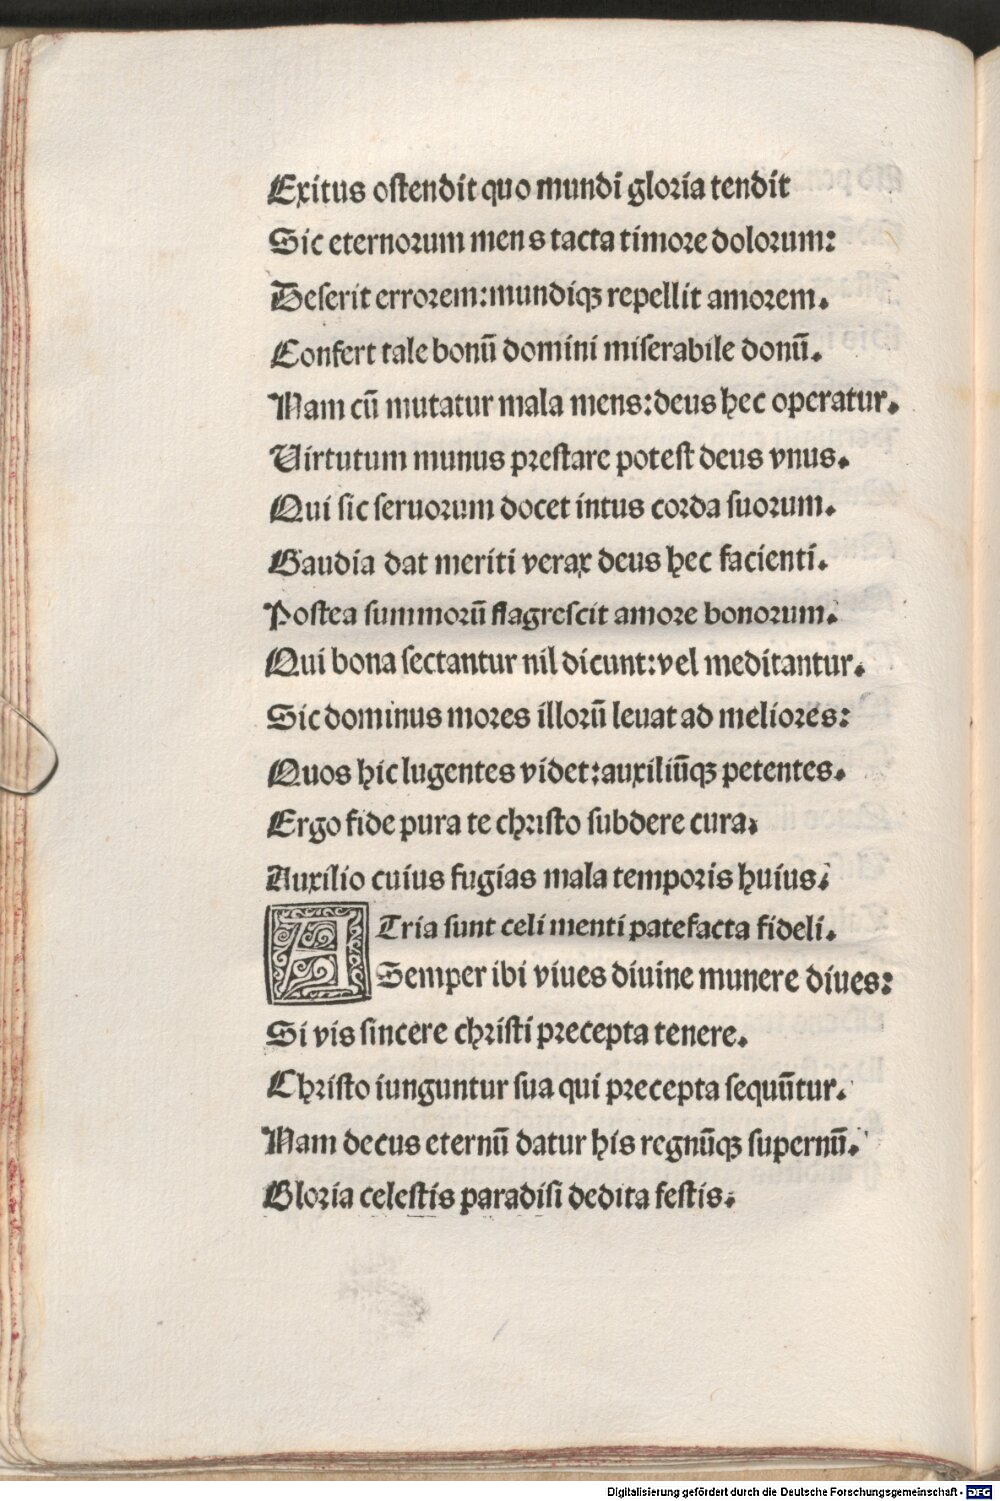 Exitus ostendit quo mundi gloria tendit
Sic eternorum mens tacta timore dolorum:
Deserit errorem: mundiqꝫ repellit amorem.
Confert tale bonū domini miserabile donū.
Nam cū mutatur mala mens: deus hec operatur.
Virtutum munus prestare potest deus vnus.
Qui sic seruorum docet intus corda suorum.
Gaudia dat meriti verax deus hec facienti.
Postea summorū flagrescit amore bonorum.
Qui bona sectantur nil dicunt: vel meditantur.
Sic dominus mores illorū leuat ad meliores:
Quos hic lugentes videt: auxiliūqꝫ petentes.
Ergo fide pura te christo subdere cura.
Auxilio cuius fugias mala temporis huius.
ATria sunt celi menti patefacta fideli.
Semper ibi viues diuine munere diues:
Si vis sincere christi precepta tenere.
Christo iunguntur sua qui precepta sequūtur.
Nam decus eternū datur his regnūqꝫ supernū.
Gloria celestis paradisi dedita festis.
Digitalisierung gefördert durch die Deutsche Forschungsgemeinschaft - DFG